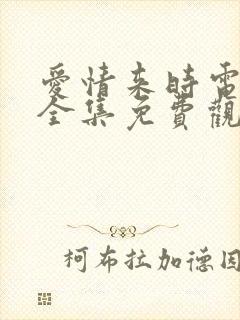 愛情來時電
全集免費觀
柯布拉加德因